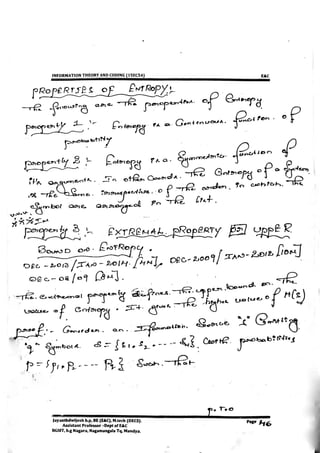 INFORMATION THEORY AND CODING (15EC54) E&C
PROPERTIES OF ENTROPY:
The following are the properties of Entropy
property 1 :- Entropy is a Continuous function of
probability
property 2 :- Entropy is a Symmetric function of
its arguments. In other words, the Entropy of a System
is the Same irrespective of the order in which the
symbol are arranged in the
property 3 :- EXTREMAL PROPERTY UPPER
BOUND ON ENTROPY.
DEC-2013/JAN-2014. DEC-2009/JAN-2012 [10M]
DEC-08/09 [8M].
The extremal property defines the upper bound on the
value of entropy. It gives the higher value of H(s)
proof:- Consider an Information Source "s" Consisting
"q" Symbols S = {s1, s2 ---- with probabilities
P = {p1, p2 ---- Such that
P.T.O
Asssitant Professor -Dept of E&C
BGSIT, b.g Nagara, Nagamangala Tq, Mandya.
Page 46